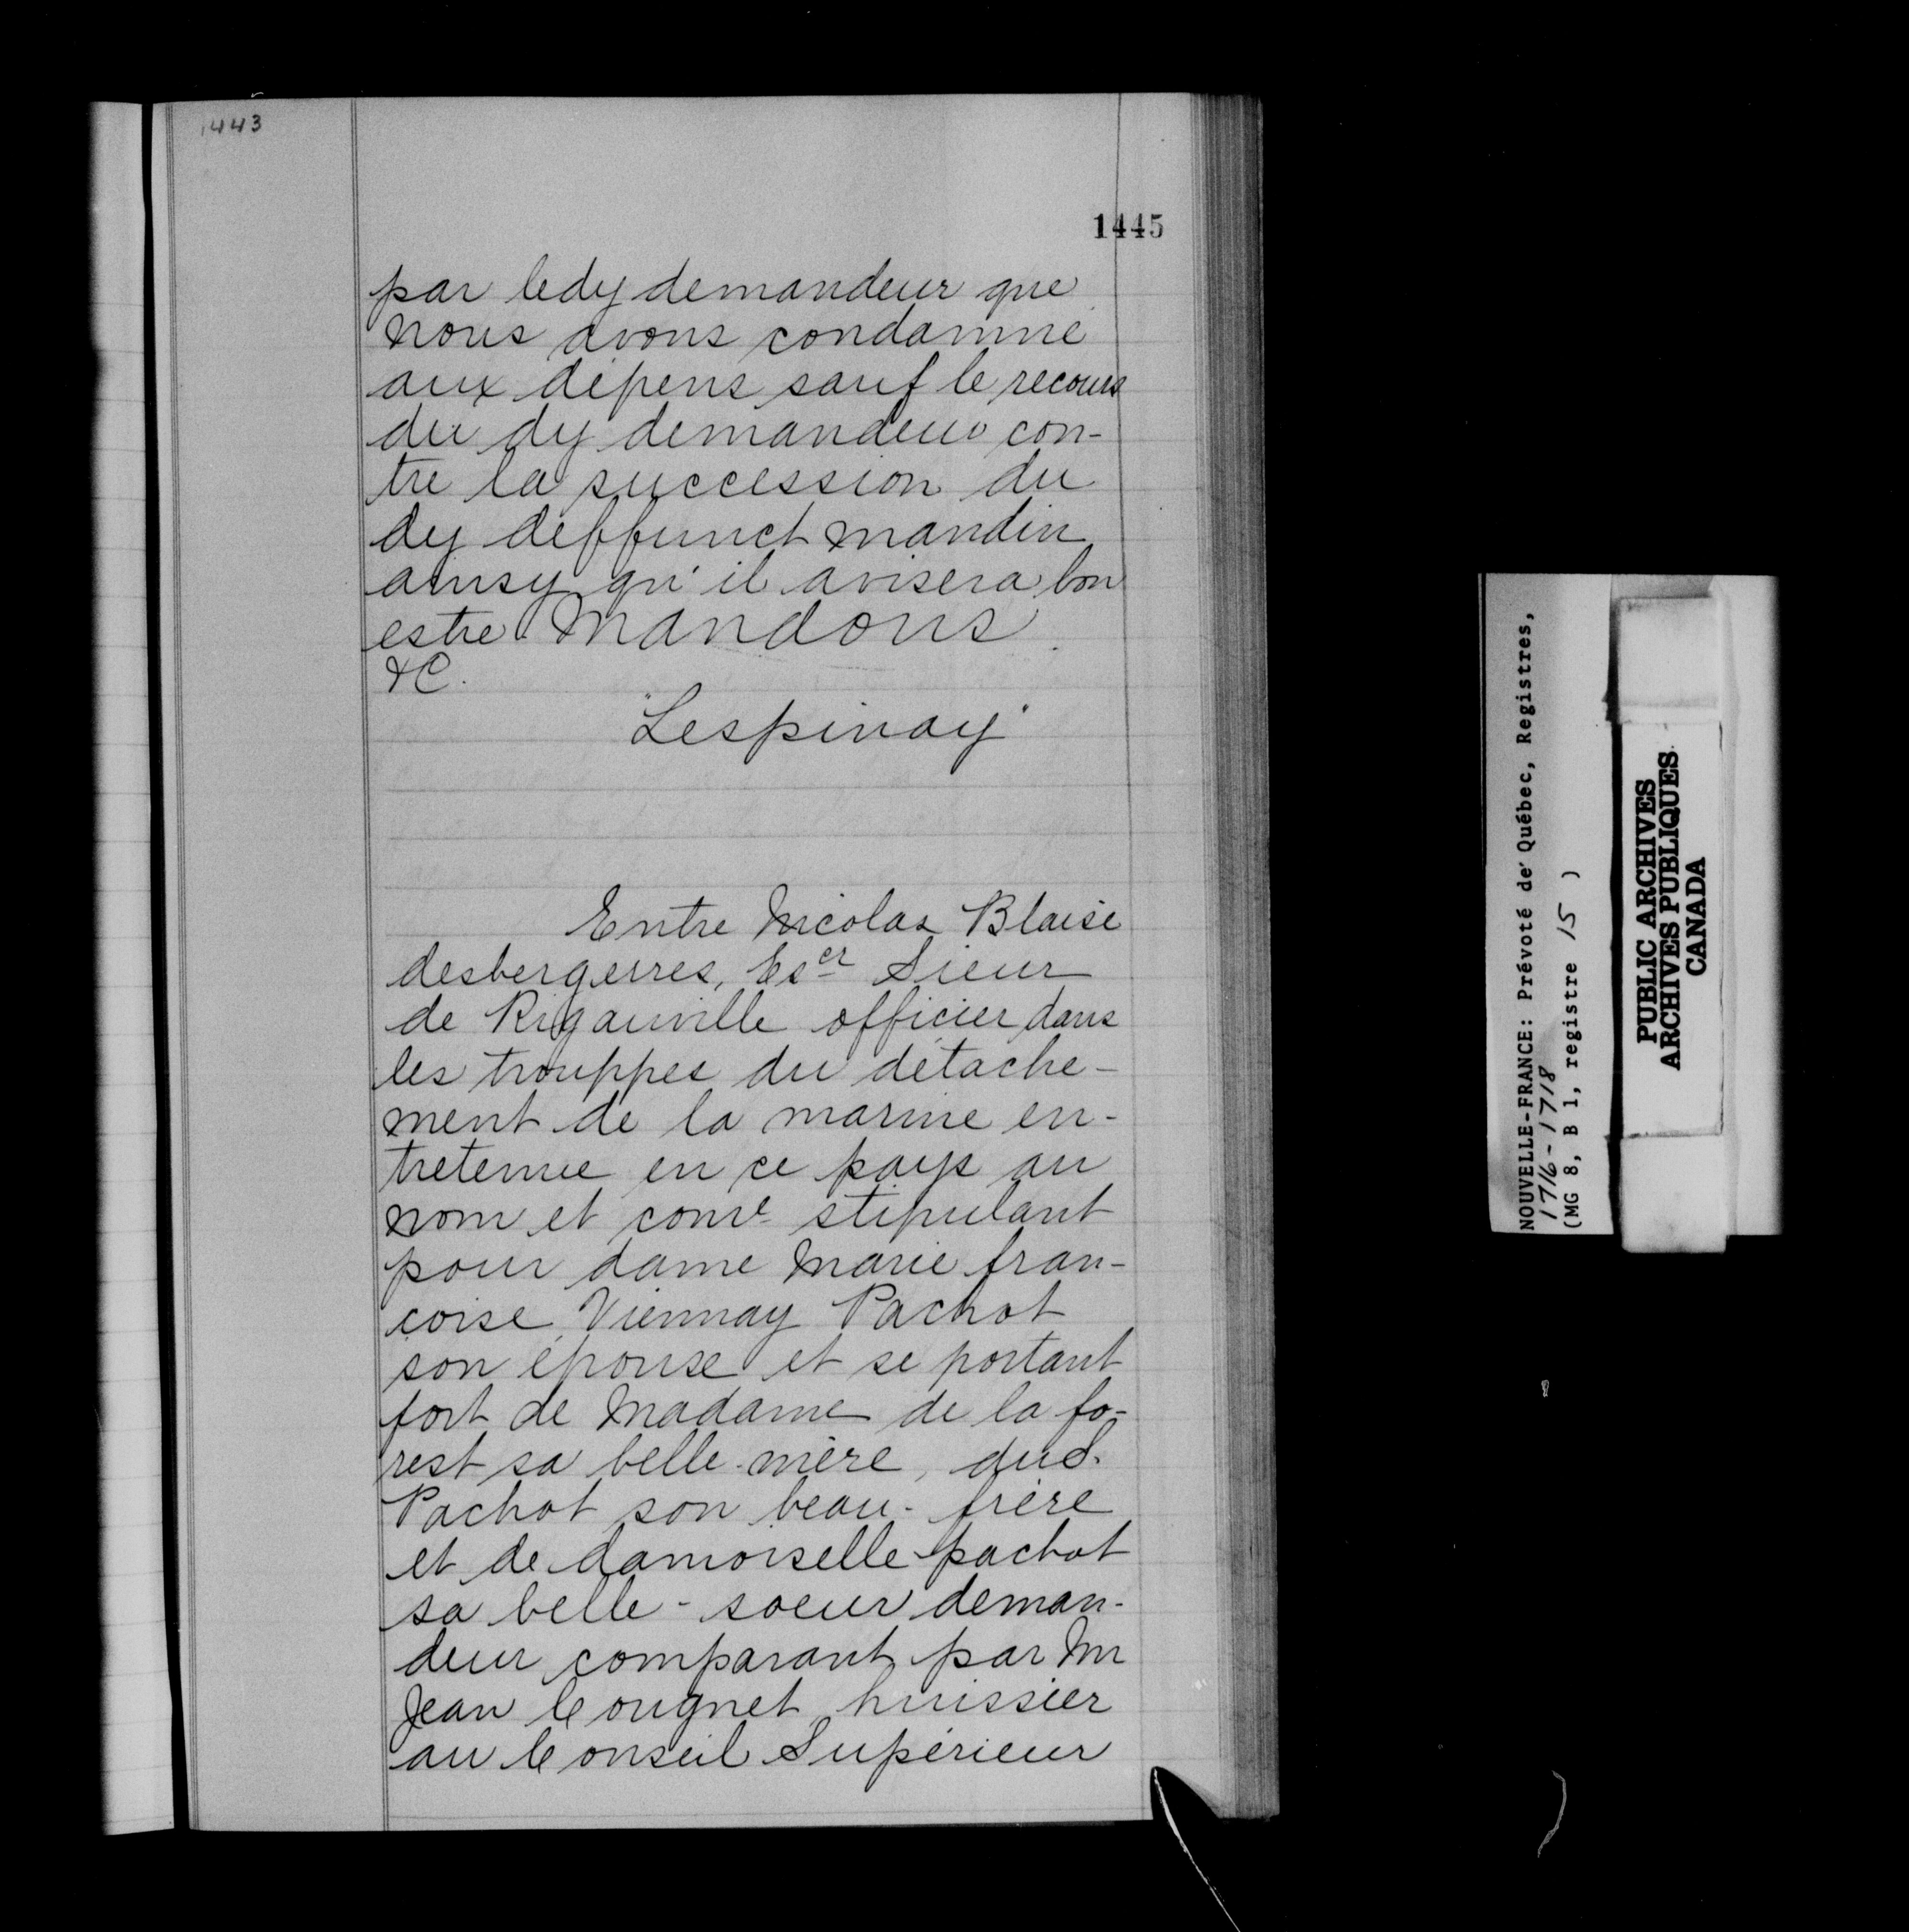 1443
1445
par ledy demandeur que
nous avons condamné
aux dépens sauf le recours
du dy demandeur con-
tre la succession du
dy deffunct mandin
ainsy qu'il avisera bon
estre Mandons
&C.
"Lespinay"
Entre Nicolas Blaise
desbergerres, Escr Sieur
de Rigauville officier dans
les trouppes du détache-
ment de la marine en-
tretenue en ce pays au
nom et come stipulant
pour dame Marie fran-
çoise Viennay Pachot
son épouse et se portant
fort de Madame de la fo-
rest sa belle-mère, du S.
Pachot son beau-frère
et de damoiselle pachot
sa belle-soeur deman-
deur comparant par Mr
Jean Cougnet huissier
au Conseil Supérieur
NOUVELLE-FRANCE: Prévoté de Québec, Registres,
1716-1718
(MG 8, B 1, registre 15 )
PUBLIC ARCHIVES
ARCHIVES PUBLIQUES
CANADA